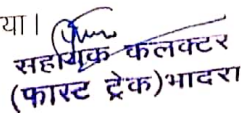 या।
सहायक कलक्टर
(फास्ट ट्रेक)भादरा